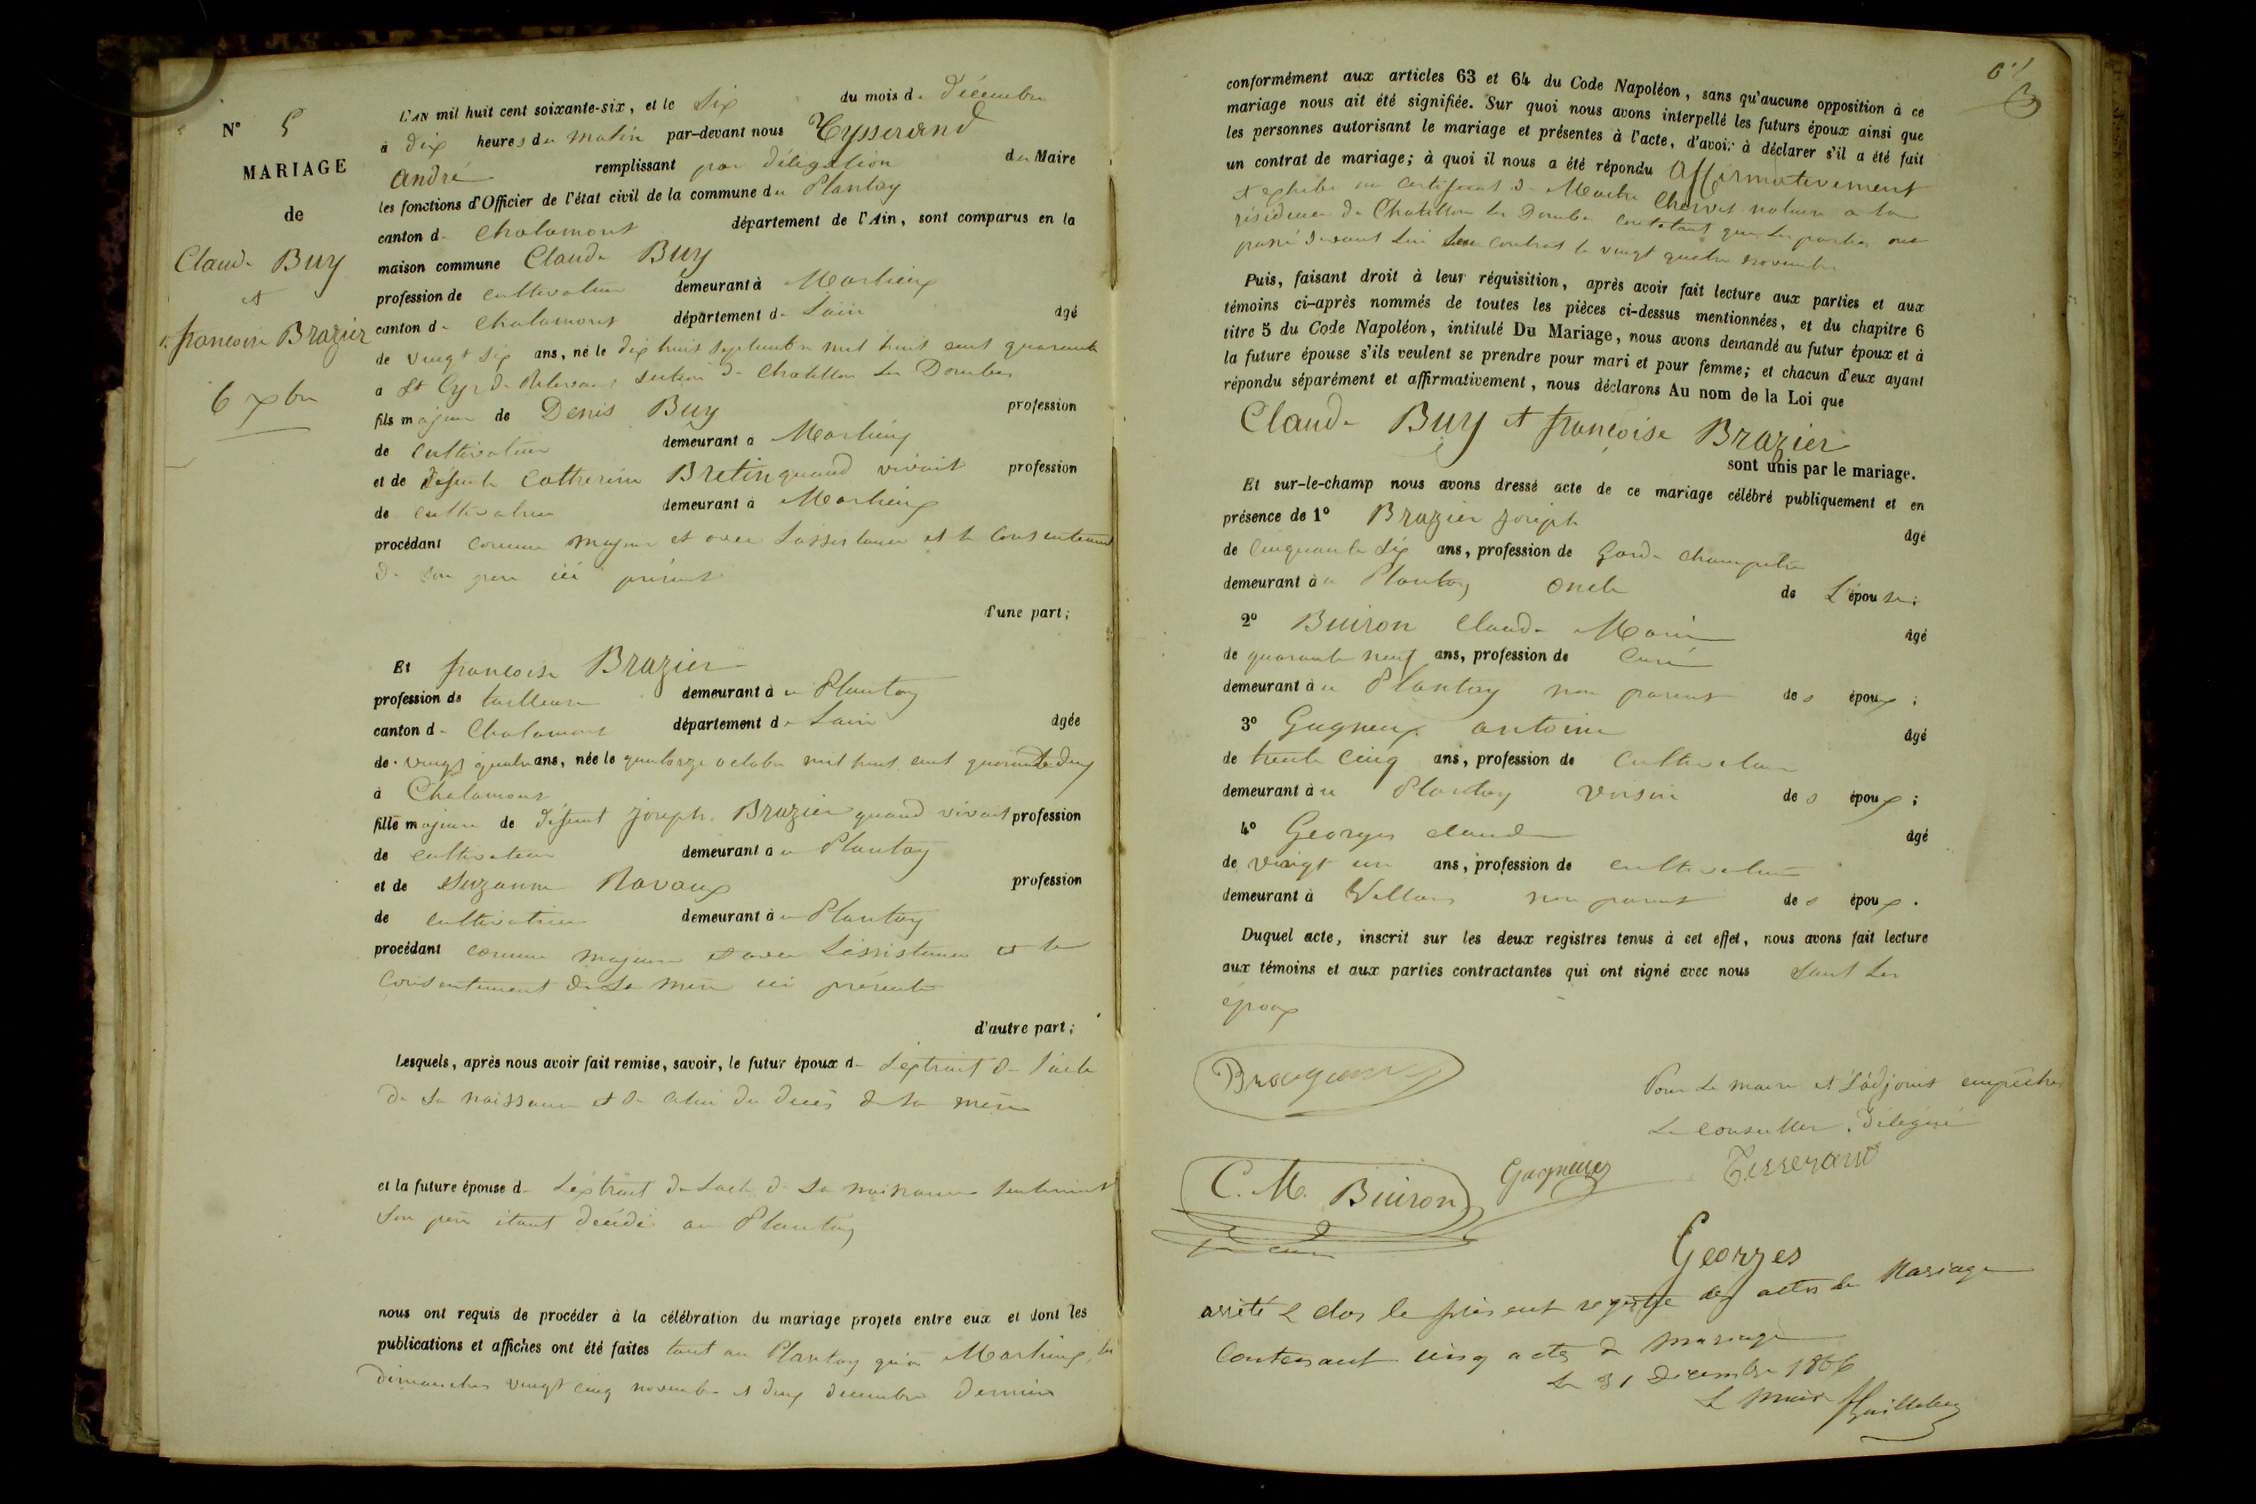 N° 5
MARIAGE
de
Claude Buy
et
françoise Brazier
6 xbre
L'AN mil huit cent soixante-six, et le Six du mois de décembre
à dix heures du matin par-devant nous Tysserand
André remplissant par délégation du Maire
les fonctions d'Officier de l'état civil de la commune du Plantay
canton de Chalamont département de l'Ain, sont comparus en la
maison commune Claude Buy
profession de cultivateur demeurant à Marlieux
canton de Chalamont département de L'ain âgé
de vingt six ans, né le dix huit Septembre mil huit cent quarante
a St Cyr de Relevans section de Chatillon les Dombes
fils majeur de Denis Buy profession
de cultivateur demeurant a Marlieux
et de défunte Catherine Bretin quand vivait profession
de cultivatrice demeurant à Marlieux
procédant comme majeur et avec L'assistance et le consentement
de son père ici présent
d'une part;
Et françoise Brazier
profession de tailleuse demeurant à u Plantay
canton de Chalamont département de L'ain âgée
de vingt quatre ans, née le quatorze octobre mil huit cent quarante deux
à Chalamont
fille majeure de défunt Joseph Brazier quand vivait profession
de cultivateur demeurant a u Plantay
et de Suzanne Ravaux profession
de cultivatrice demeurant à u Plantay
procédant comme majeure et avec L'assistance et le
consentement de Sa mère ici présente
d'autre part;
Lesquels, après nous avoir fait remise, savoir, le futur époux de L'extrait de l'acte
de Sa naissance et de celui du décès de Sa mère
et la future épouse de L'extrait de L'acte de Sa naissance Seulement
Son père étant décédé au Plantay
nous ont requis de procéder à la célébration du mariage projeté entre eux et dont les
publications et affiches ont été faites tant au Plantay qu'à Marlieux, les
dimanches vingt cinq novembre et deux décembre dernier
conformément aux articles 63 et 64 du Code Napoléon, sans qu'aucune opposition à ce
mariage nous ait été signifiée. Sur quoi nous avons interpellé les futurs époux ainsi que
les personnes autorisant le mariage et présentes à l'acte, d'avoir à déclarer s'il a été fait
un contrat de mariage; à quoi il nous a été répondu Affirmativement
et exhibé un certificat de Maitre Chervet notaire a la
résidence de Chatillon les Dombes constatant que les parties ont
passé devant Lui Leur contrat le vingt quatre novembre
Puis, faisant droit à leur réquisition, après avoir fait lecture aux parties et aux
témoins ci-après nommés de toutes les pièces ci-dessus mentionnées, et du chapitre 6
titre 5 du Code Napoléon, intitulé Du Mariage, nous avons demandé au futur époux et à
la future épouse s'ils veulent se prendre pour mari et pour femme; et chacun d'eux ayant
répondu séparément et affirmativement, nous déclarons Au nom de la Loi que
Claude Buy et françoise Brazier
sont unis par le mariage.
Et sur-le-champ nous avons dressé acte de ce mariage célébré publiquement et en
présence de 1° Brazier Joseph âgé
de Cinquante Six ans, profession de Garde champêtre
demeurant à u Plantay oncle de L'épouse;
2° Buiron Claude Marie âgé
de quarante neuf ans, profession de Curé
demeurant à u Plantay non parent des époux;
3° Gagneux antoine âgé
de trente Cinq ans, profession de Cultivateur
demeurant à u Plantay voisin des époux;
4° Georges claude âgé
de vingt un ans, profession de cultivateur
demeurant à Villars non parent des époux.
Duquel acte, inscrit sur les deux registres tenus à cet effet, nous avons fait lecture
aux témoins et aux parties contractantes qui ont signé avec nous Sauf Les
époux
Pour Le maire et L'adjoint empêchés
Le conseiller délégué
Tisserand
C. M. Buiron
Gagneux
Georges
arrêté & clos le présent registre des actes de Mariage
Contenant cinq actes de mariage
Le 31 Décembre 1866
Le Maire